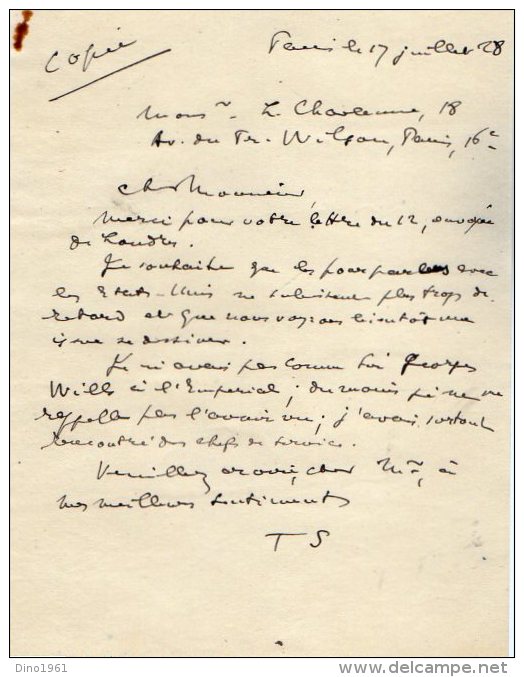 Copie
Paris le 17 juillet 28
Monsr L. Charlanne, 18
Av. du Pr. Wilson, Paris, 16e
Cher Monsieur,
Merci pour votre lettre du 12, envoyée
de Londres.
Je souhaite que les pourparlers avec
les Etats-Unis ne subissent plus trop de
retard et que nous voyons bientôt une
issue se dessiner.
Je n'avais pas connu Sir George
Wills à l'Imperial; du moins je ne me
rappelle pas l'avoir vu; j'avais surtout
rencontré des chefs de service.
Veuillez croire, cher Mr, à
mes meilleurs sentiments
T S
Dino1961
delcampe.net